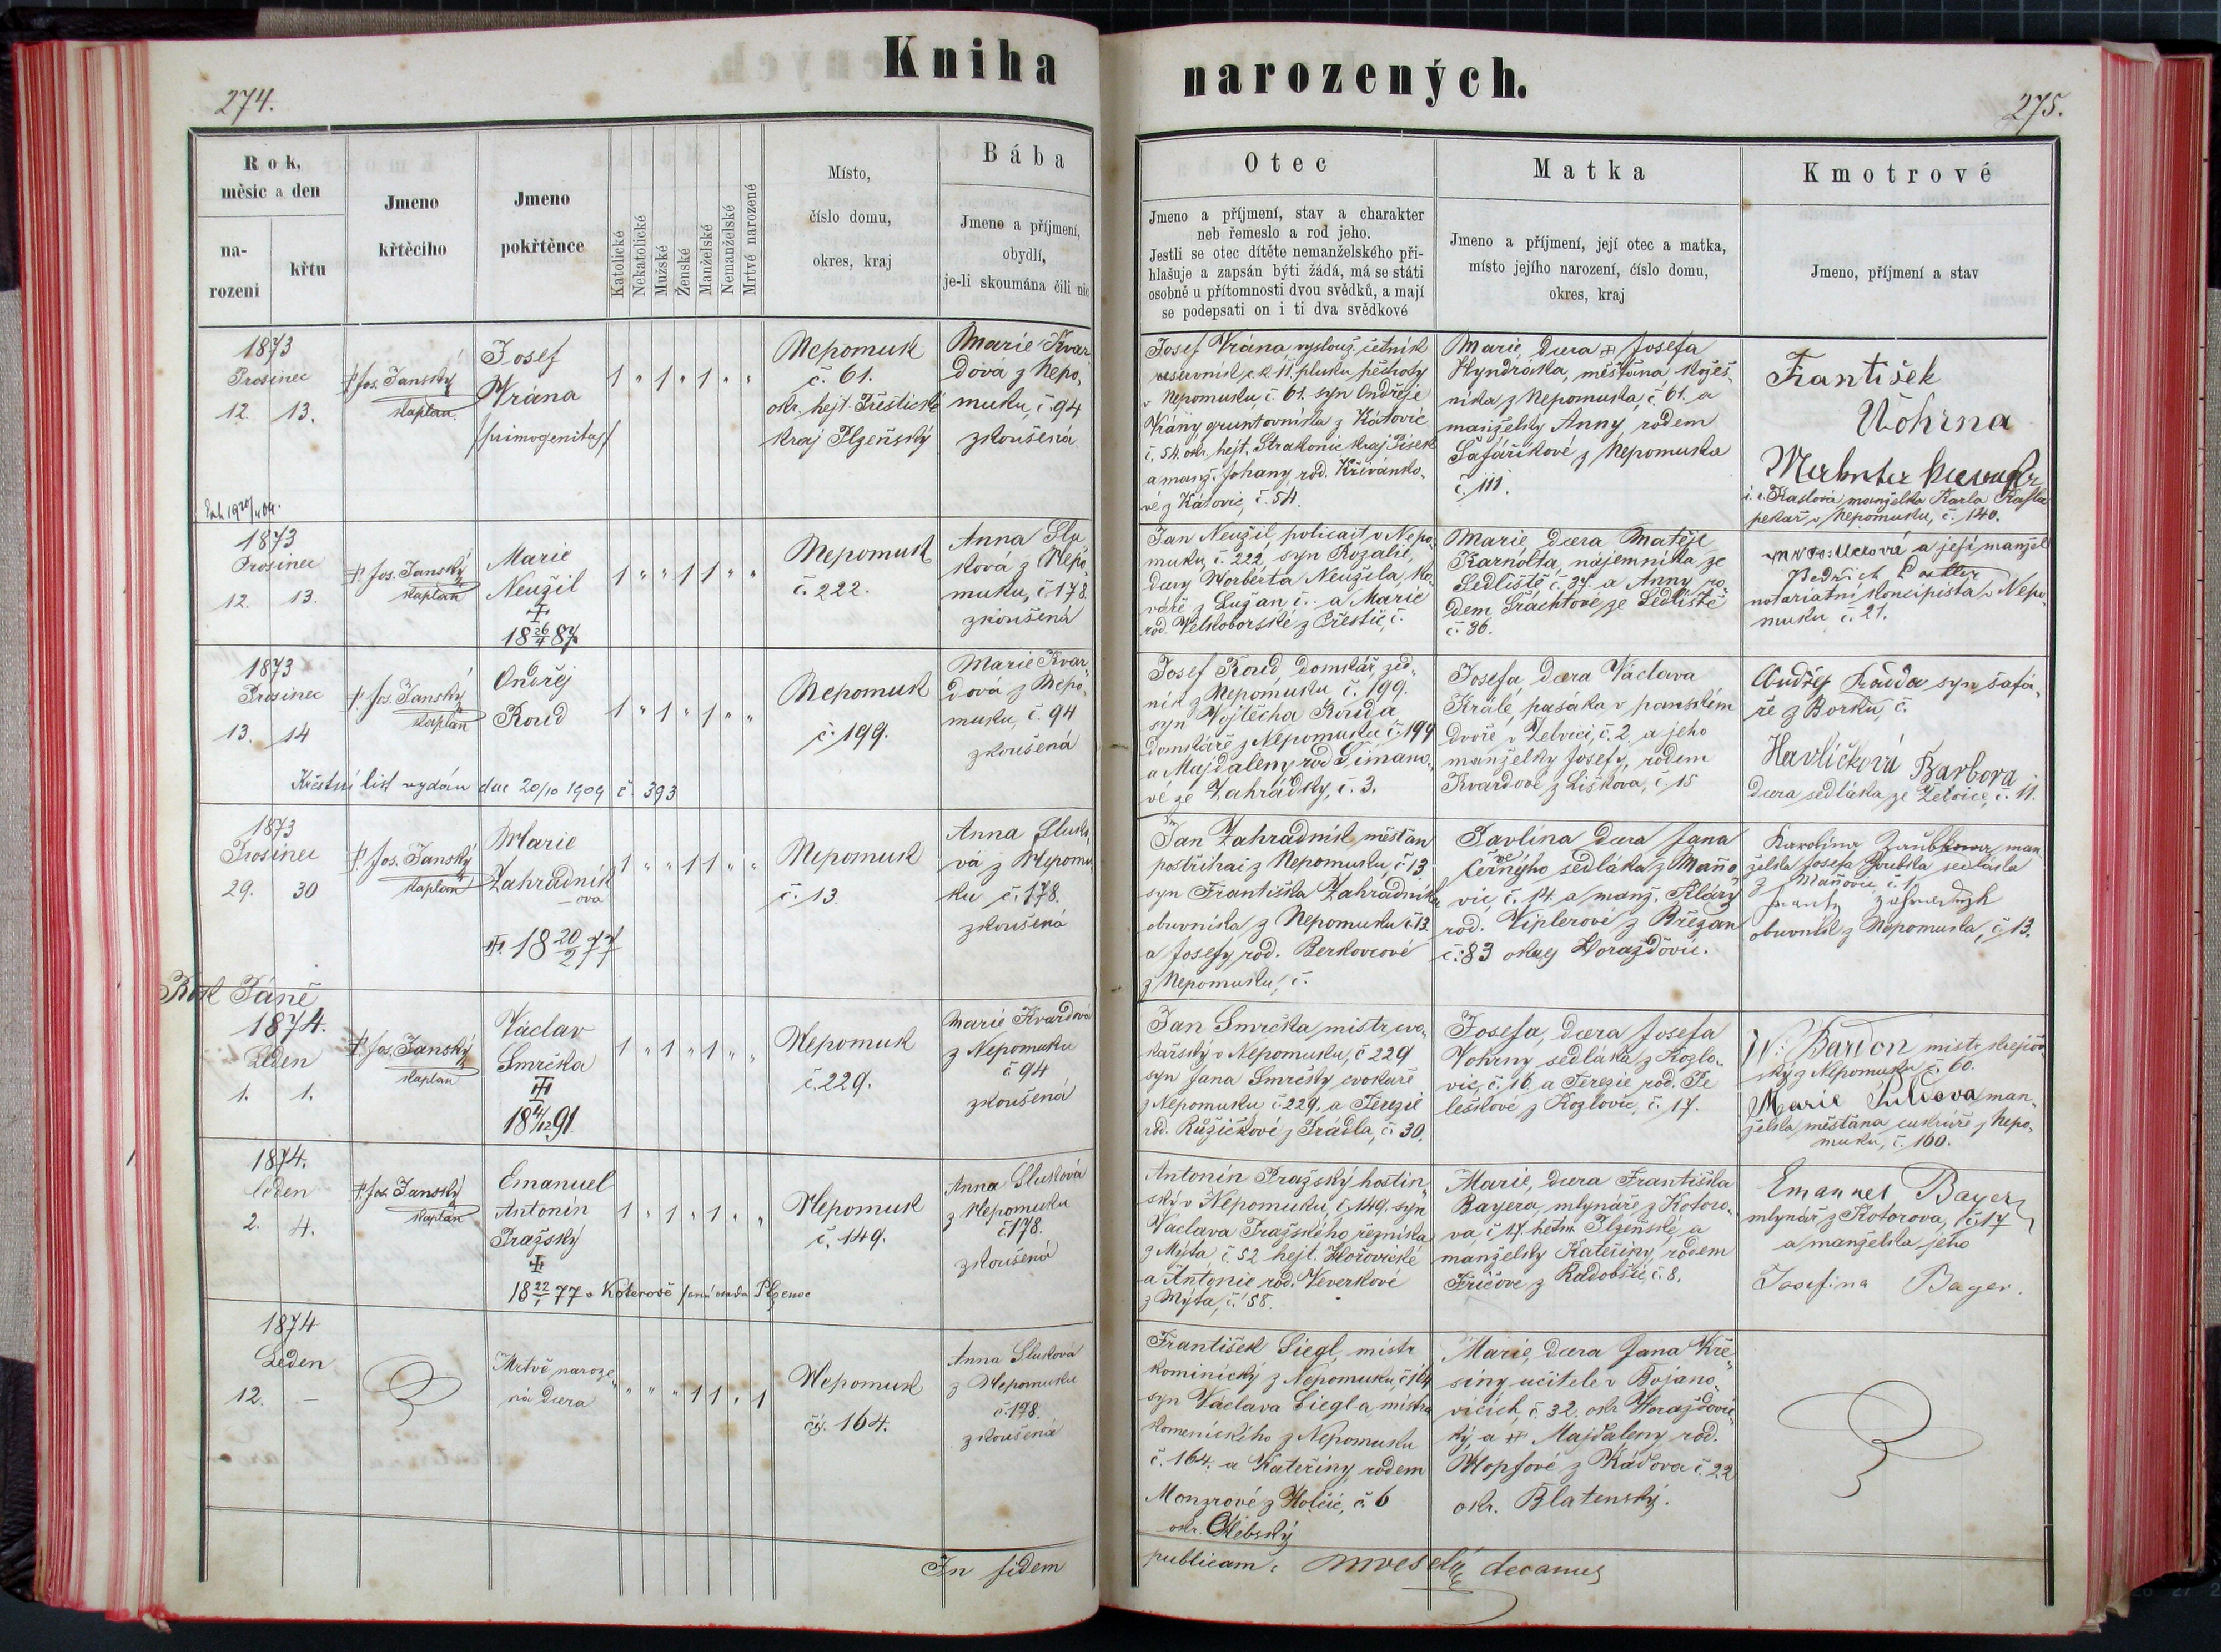 Kniha narozených.
274.
275.
Rok, měsíc a den
na-
rození
křtu
Jmeno
křtěcího
Jmeno
pokřtěnce
Katolické
Nekatolické
Mužské
Ženské
Manželské
Nemanželské
Mrtvé narozené
Místo,
číslo domu,
okres, kraj
Bába
Jmeno a příjmení,
obydlí,
je-li skoumána čili nic
Otec
Jmeno a příjmení, stav a charakter
neb řemeslo a rod jeho.
Jestli se otec dítěte nemanželského při-
hlašuje a zapsán býti žádá, má se státi
osobně u přítomnosti dvou svědků, a mají
se podepsati on i ti dva svědkové
Matka
Jmeno a příjmení, její otec a matka,
místo jejího narození, číslo domu,
okres, kraj
Kmotrové
Jmeno, příjmení a stav
1873
Prosinec
12. 13.
P. Jos. Janský
kaplan
Josef
Vrána
/primogenitus/
1 " 1 " 1 " "
Nepomuk
č. 61.
okr. hejt. Přeštické
kraj Plzeňský
Marie Kvar-
dová z Nepo-
muku, č. 94
zkoušená
Josef Vrána, vyslouž. četník
reservník c. k. 11. pluku pěchoty
v Nepomuku, č. 61. syn Ondřeje
Vrány, gruntovníka z Kátovic
č. 54. okr. hejt. Strakonic kraj Písek
a manž. Johany, rod. Křivánko-
vé z Kátovic, č. 54.
Marie, dcera Josefa
Hyndráka, měštana kožeš-
níka z Nepomuka, č. 61. a
manželky Anny, rodem
Šafaříkové z Nepomuka
č. 111.
František
Vohrna
i. e. Raslová manželka Karla Rasla
pekař v Nepomuku, č. 140.
1873
Prosinec
12. 13.
P. Jos. Janský
kaplan
Marie
Neužil
18 26/4 87
1 " " 1 1 " "
Nepomuk
č. 222.
Anna Slu-
ková z Nepo-
muku, č. 178
zkoušená
Jan Neužil, policait v Nepo-
muku, č. 222, syn Rozalie,
dcery Norberta Neužila, ko-
váře z Lužan č. a Marie
rod. Velkoborské z Přeštic, č.
Marie, dcera Matěje
Karnolta, nájemníka ze
Sedliště č. 37. a Anny, ro-
dem Tráchtové ze Sedliště
č. 36.
a její manžel
notariatní koncipista v Nepo-
muku č. 21.
1873
Prosinec
13. 14
P. Jos. Janský
kaplan
Ondřej
Roud
1 " 1 " 1 " "
Nepomuk
č. 199.
Marie Kvar-
dová z Nepo-
muku, č. 94
zkoušená
Josef Roud, domkář, zed-
ník z Nepomuku, č. 199.
syn Vojtěcha Rouda
domkáře z Nepomuku č. 199
a Majdaleny, rod. Šimano-
vé ze Zahrádky, č. 3.
Josefa, dcera Václava
Krále, pasáka v panském
dvoře v Želvici, č. 2, a jeho
manželky Josefy, rodem
Kvardové z Liškova, č. 15
Andřej Rauda syn šafá-
ře z Borku, č.
Havlíčková Barbora
dcera sedláka ze Želvice, č. 11.
Křestní list vydán dne 20/10 1909 č. 393
1873
Prosinec
29. 30
P. Jos. Janský
kaplan
Marie
Zahradník
ova
18 20/2 77
1 " " 1 1 " "
Nepomuk
č. 13.
Anna Sluko-
vá z Nepomu-
ku č. 178.
zkoušená
Jan Zahradník, měštan
postřihač z Nepomuku, č. 13.
syn Františka Zahradníka
obuvníka z Nepomuku č. 13.
a Josefy, rod. Berkovcové
z Nepomuku, č.
Pavlína dcera Jana
Černého sedláka z Maňo-
vic, č. 14. a manž. Kláry
rod. Viplerové z Břežan
č. 83 okres Horažďovic.
Karolína Zaubkowa man-
želka Josefa Zoubka sedláka
z Maňovic č. 1.
obuvník z Nepomuka, č. 13.
Rok Páně
1874.
Leden
1. 1.
P. Jos. Janský
kaplan
Václav
Smrčka
18 4/12 91
1 " 1 " 1 " "
Nepomuk
č. 229.
Marie Kvardová
z Nepomuku
č. 94
zkoušená
Jan Smrčka, mistr cvo-
kařský v Nepomuku, č. 229
syn Jana Smrčky, cvokaře
z Nepomuku č. 229. a Terezie
rod. Růžičkové z Prádla, č. 30.
Josefa, dcera Josefa
Vohrny, sedláka z Kozlo-
vic, č. 16. a Terezie rod. Pe-
leškové z Kozlovic, č. 17.
V. Bardon mistr krejčov-
ský z Nepomuka č. 60.
Marie Puličova man-
želka měštana cukráře z Nepo-
muku, č. 160.
1874.
leden
2. 4.
P. Jos. Janský
kaplan
Emanuel
Antonín
Pražský
18 22/1 77 v Koterově
1 " 1 " 1 " "
Nepomuk
č. 149.
Anna Sluková
z Nepomuku
č. 178.
zkoušená
Antonín Pražský, hostin-
ský v Nepomuku, č. 149. syn
Václava Pražského, řezníka
z Mýta, č. 52 hejt. Hořovické
a Antonie rod. Veverkové
z Mýta, č. 58.
Marie, dcera Františka
Bayera, mlynáře z Kotoro-
va, č. 17. hetm. Plzeňské, a
manželky Kateřiny, rodem
Fričové z Radobšic, č. 8.
Emanuel Bayer
mlynář z Kotorova, č. 17
a manželka jeho
Josefina Bayer.
1874
Leden
12. –
Mrtvě naroze-
ná dcera
" " " 1 1 " 1
Nepomuk
čís. 164.
Anna Sluková
z Nepomuku
č. 178.
zkoušená
František Siegl, mistr
kominický z Nepomuku, č. 164
syn Václava Siegla mistra
komenického z Nepomuku
č. 164. a Kateřiny, rodem
Monzrové z Holčic, č. 6
okr. Chebský
Marie, dcera Jana Kře-
siny, učitele v Bojano-
vicích, č. 32. okr. Horažďovic-
ký, a Majdaleny, rod.
Hopfové z Kádova č. 22
okr. Blatenský.
In fidem publicam: decanus